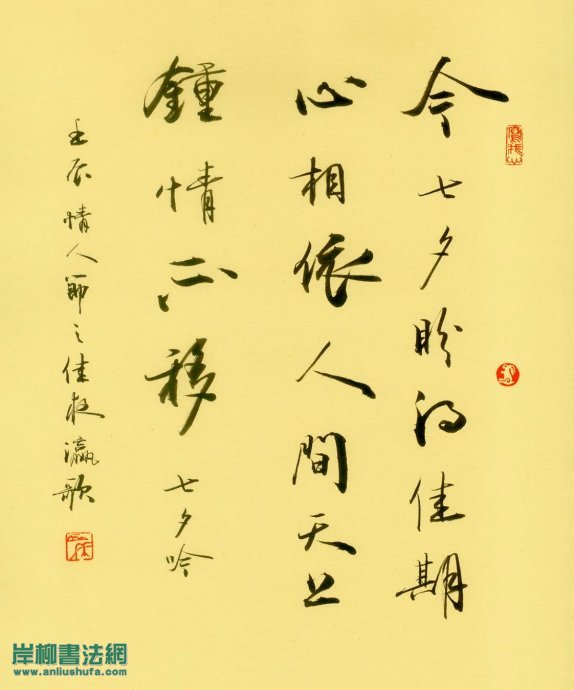 今七夕盼得佳期
心相依人間天上
鍾情不移 七夕吟
壬辰情人節之佳夜瀛歌
岸柳書法網
www.anliushufa.com